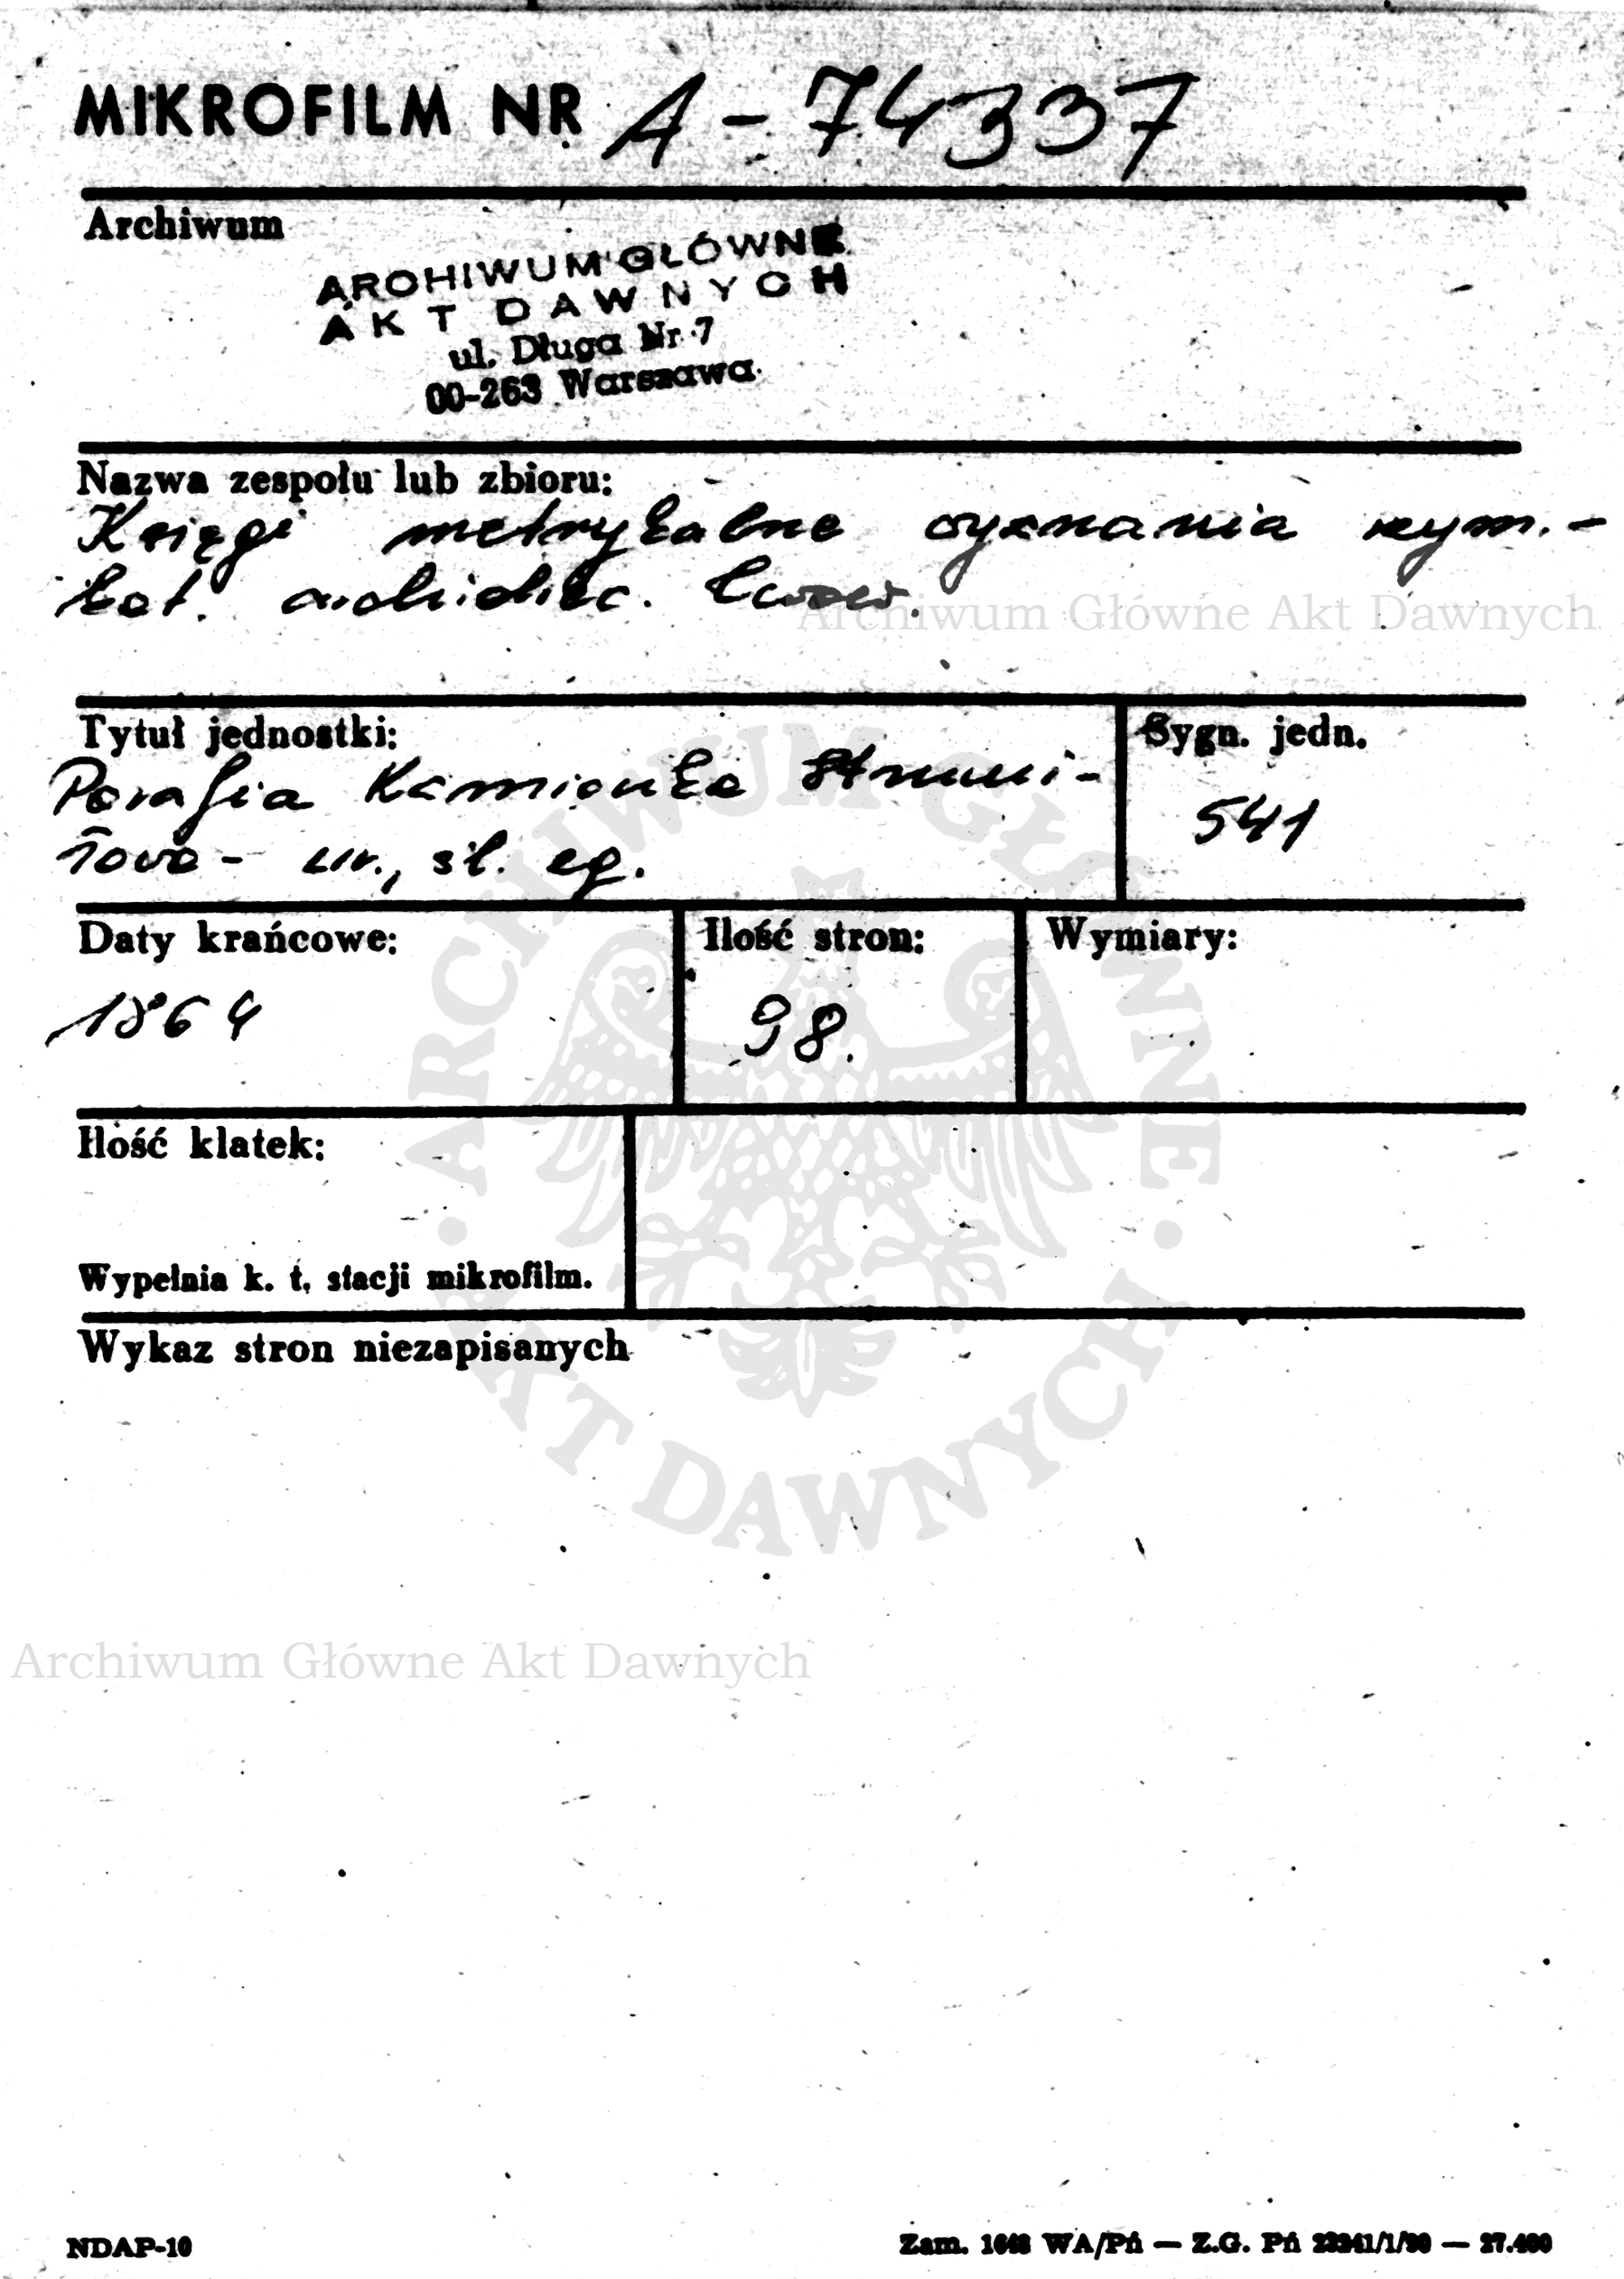 MIKROFILM NR A-74337
Archiwum
ARCHIWUM GŁÓWNE
AKT DAWNYCH
ul. Długa Nr 7
00-263 Warszawa
Nazwa zespołu lub zbioru:
Księgi metrykalne wyznania rzym.-
kat. archidiec. Lwow.
Archiwum Główne Akt Dawnych
Tytuł jednostki:
Sygn. jedn.
Parafia Kamionka Strumi-
łowa - ur., śl. zg.
541
Daty krańcowe:
Ilość stron:
Wymiary:
1864
98.
Ilość klatek:
Wypełnia k. t. stacji mikrofilm.
Wykaz stron niezapisanych
ARCHIWUM GŁÓWNE AKT DAWNYCH
Archiwum Główne Akt Dawnych
NDAP-10
Zam. WA/Pń — Z.G. Pń —